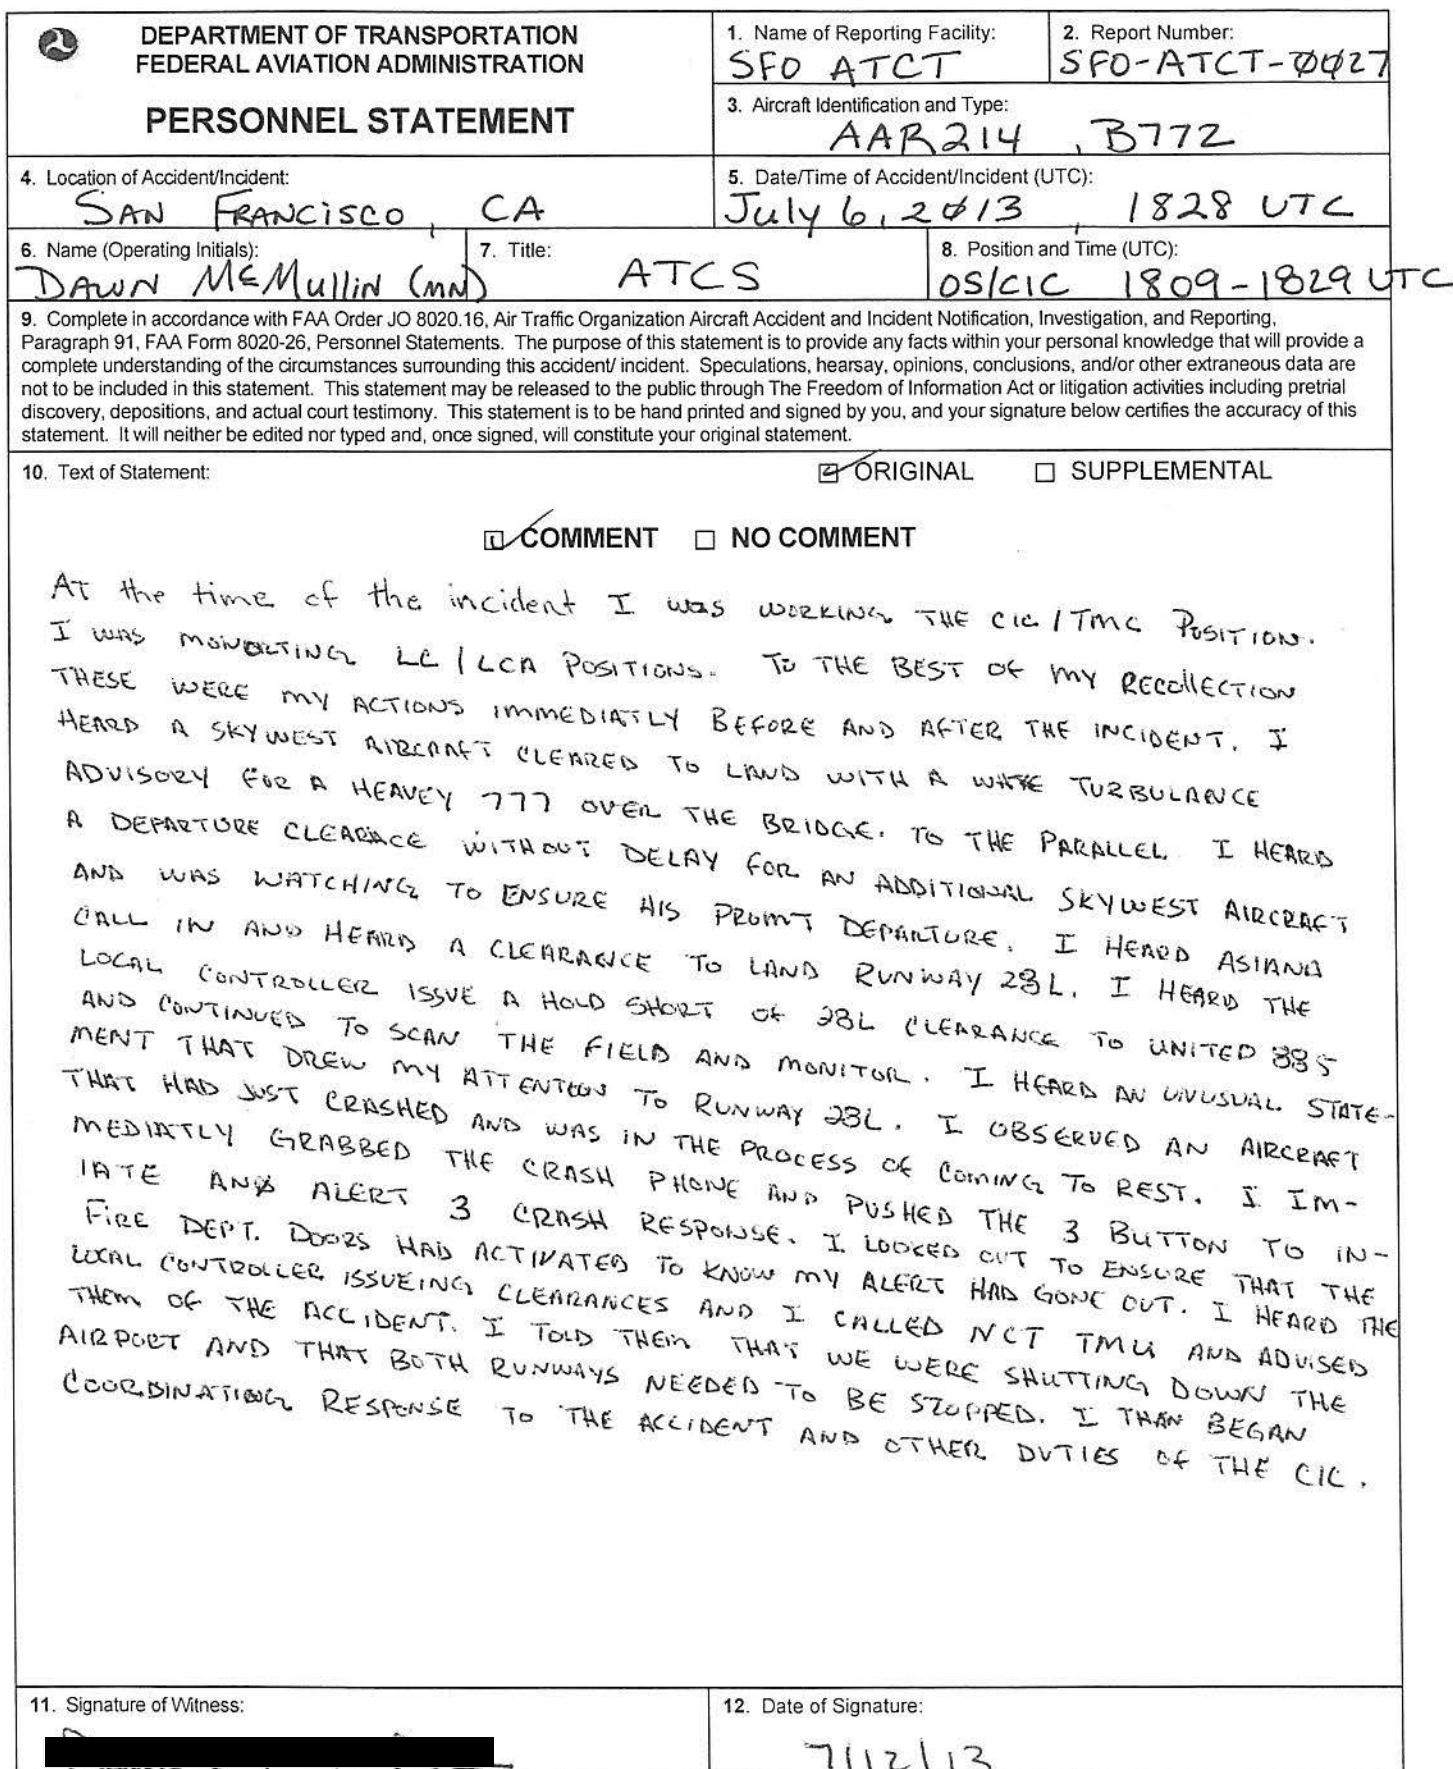 DEPARTMENT OF TRANSPORTATION
FEDERAL AVIATION ADMINISTRATION
PERSONNEL STATEMENT
1. Name of Reporting Facility:
SFO ATCT
2. Report Number:
SFO-ATCT-0027
3. Aircraft Identification and Type:
AAR214, B772
4. Location of Accident/Incident:
SAN FRANCISCO, CA
5. Date/Time of Accident/Incident (UTC):
July 6, 2013, 1828 UTC
6. Name (Operating Initials):
DAWN McMullin (MN)
7. Title:
ATCS
8. Position and Time (UTC):
OS/CIC 1809-1829 UTC
9. Complete in accordance with FAA Order JO 8020.16, Air Traffic Organization Aircraft Accident and Incident Notification, Investigation, and Reporting,
Paragraph 91, FAA Form 8020-26, Personnel Statements. The purpose of this statement is to provide any facts within your personal knowledge that will provide a
complete understanding of the circumstances surrounding this accident/ incident. Speculations, hearsay, opinions, conclusions, and/or other extraneous data are
not to be included in this statement. This statement may be released to the public through The Freedom of Information Act or litigation activities including pretrial
discovery, depositions, and actual court testimony. This statement is to be hand printed and signed by you, and your signature below certifies the accuracy of this
statement. It will neither be edited nor typed and, once signed, will constitute your original statement.
10. Text of Statement:
ORIGINAL SUPPLEMENTAL
COMMENT NO COMMENT
At the time of the incident I was WORKING THE CIC / TMC POSITION.
I WAS MONORTING LC / LCA POSITIONS. TO THE BEST OF MY RECOllECTION
THESE WERE MY ACTIONS IMMEDIATLY BEFORE AND AFTER THE INCIDENT. I
HEARD A SKYWEST AIRCRAFT CLEARED TO LAND WITH A WAKE TURBULANCE
ADVISORY FOR A HEAVEY 777 OVER THE BRIDGE. TO THE PARALLEL I HEARD
A DEPARTURE CLEARACE WITHOUT DELAY FOR AN ADDITIONAL SKYWEST AIRCRAFT
AND WAS WATCHING TO ENSURE HIS PROMT DEPARTURE. I HEARD ASIANA
CALL IN AND HEARD A CLEARANCE TO LAND RUNWAY 28L. I HEARD THE
LOCAL CONTROLLER ISSUE A HOLD SHORT OF 28L CLEARANCE TO UNITED 885
AND CONTINUED TO SCAN THE FIELD AND MONITOR. I HEARD AN UNUSUAL STATE-
MENT THAT DREW MY ATTENTION TO RUNWAY 28L. I OBSERVED AN AIRCRAFT
THAT HAD JUST CRASHED AND WAS IN THE PROCESS OF COMING TO REST. I IM-
MEDIATLY GRABBED THE CRASH PHONE AND PUSHED THE 3 BUTTON TO IN-
IATE AN ALERT 3 CRASH RESPONSE. I LOOKED OUT TO ENSURE THAT THE
FIRE DEPT. DOORS HAD ACTIVATED TO KNOW MY ALERT HAD GONE OUT. I HEARD THE
LOCAL CONTROLLER ISSUEING CLEARANCES AND I CALLED NCT TMU AND ADVISED
THEM OF THE ACCIDENT. I TOLD THEM THAT WE WERE SHUTTING DOWN THE
AIRPORT AND THAT BOTH RUNWAYS NEEDED TO BE STOPPED. I THAN BEGAN
COORDINATING RESPONSE TO THE ACCIDENT AND OTHER DUTIES OF THE CIC.
11. Signature of Witness:
12. Date of Signature:
7/12/13